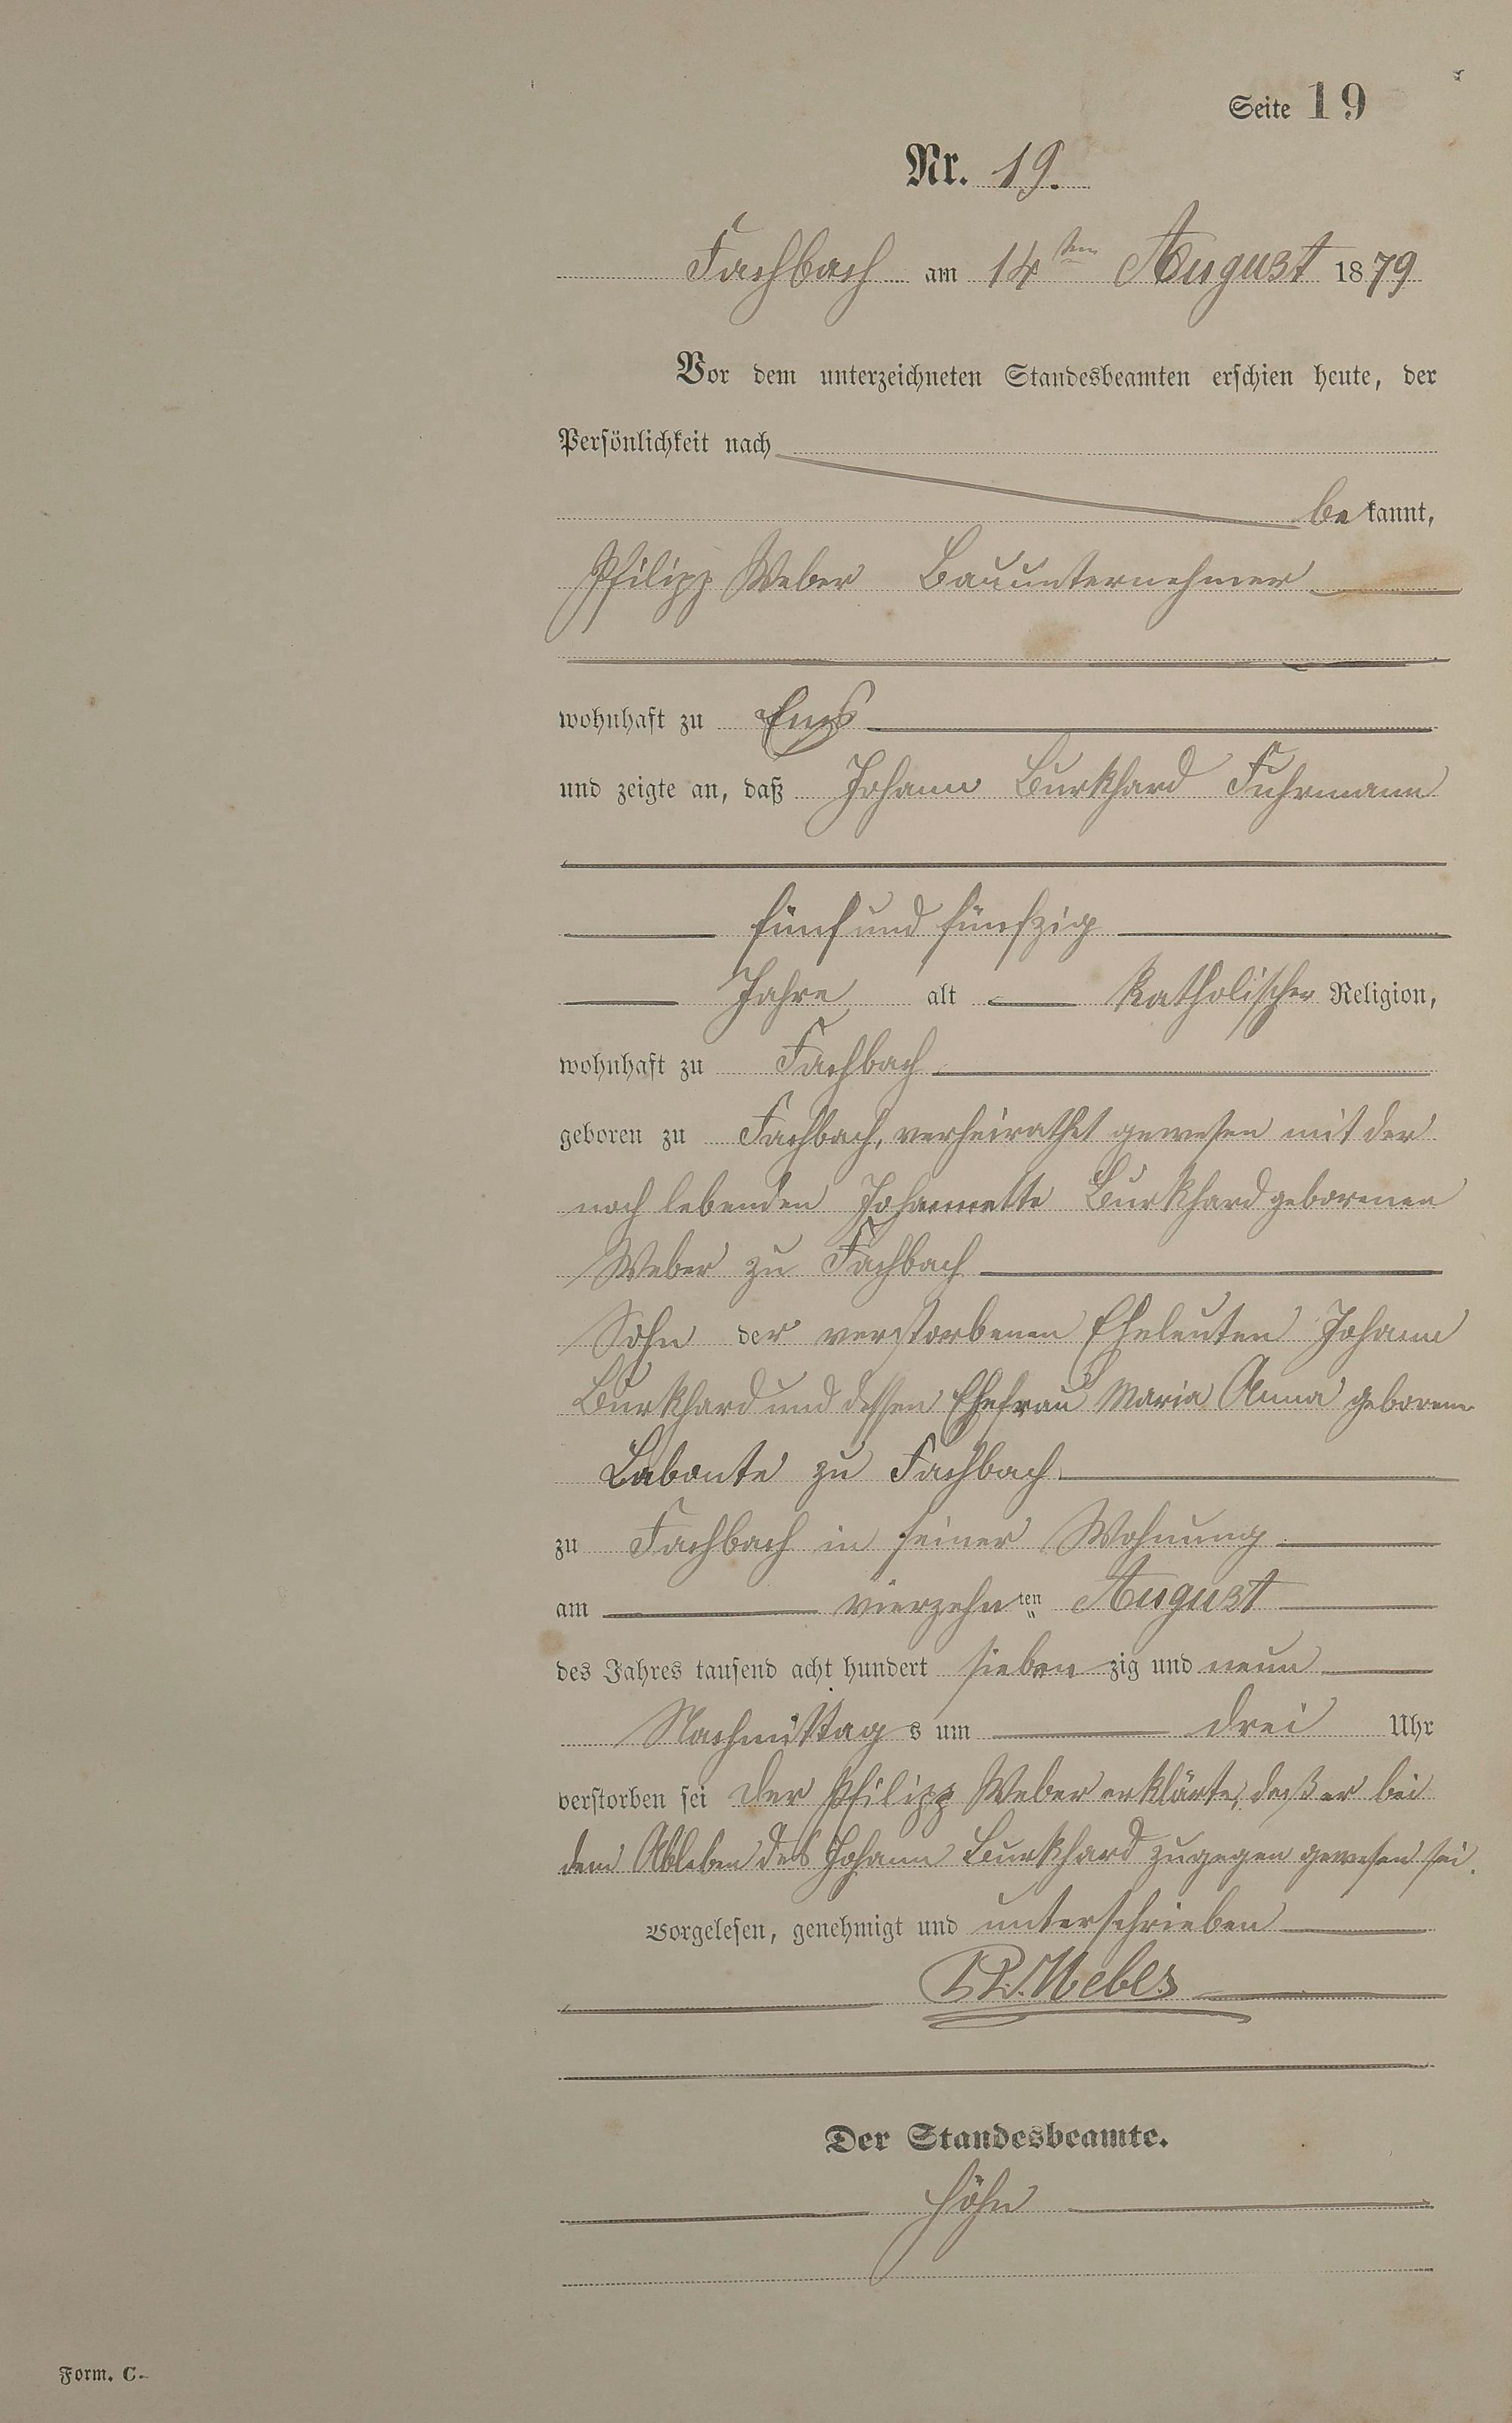 Seite 19
Nr. 19.
Fachbach am 14ten August 1879
Vor dem unterzeichneten Standesbeamten erschien heute, der
Persönlichkeit nach
bekannt,
Philipp Weber Bauunternehmer
wohnhaft zu Ems
und zeigte an, daß Johann Burkhard Fuhrmann
fünf und fünfzig
Jahre alt katholischer Religion,
wohnhaft zu Fachbach
geboren zu Fachbach, verheirathet gewesen mit der
noch lebenden Johannette Burkhard geborenen
Weber zu Fachbach
Sohn der verstorbenen Eheleuten Johann
Burkhard und dessen Ehefrau Maria Anna geborene
Labonte zu Fachbach
zu Fachbach in seiner Wohnung
am vierzehnten August
des Jahres tausend acht hundert siebenzig und neun
Nachmittags um drei Uhr
verstorben sei der Philipp Weber erklärte, daß er bei
dem Ableben des Johann Burkhard zugegen gewesen sei.
Vorgelesen, genehmigt und unterschrieben
Weber
Der Standesbeamte.
Höhn
Form. C.